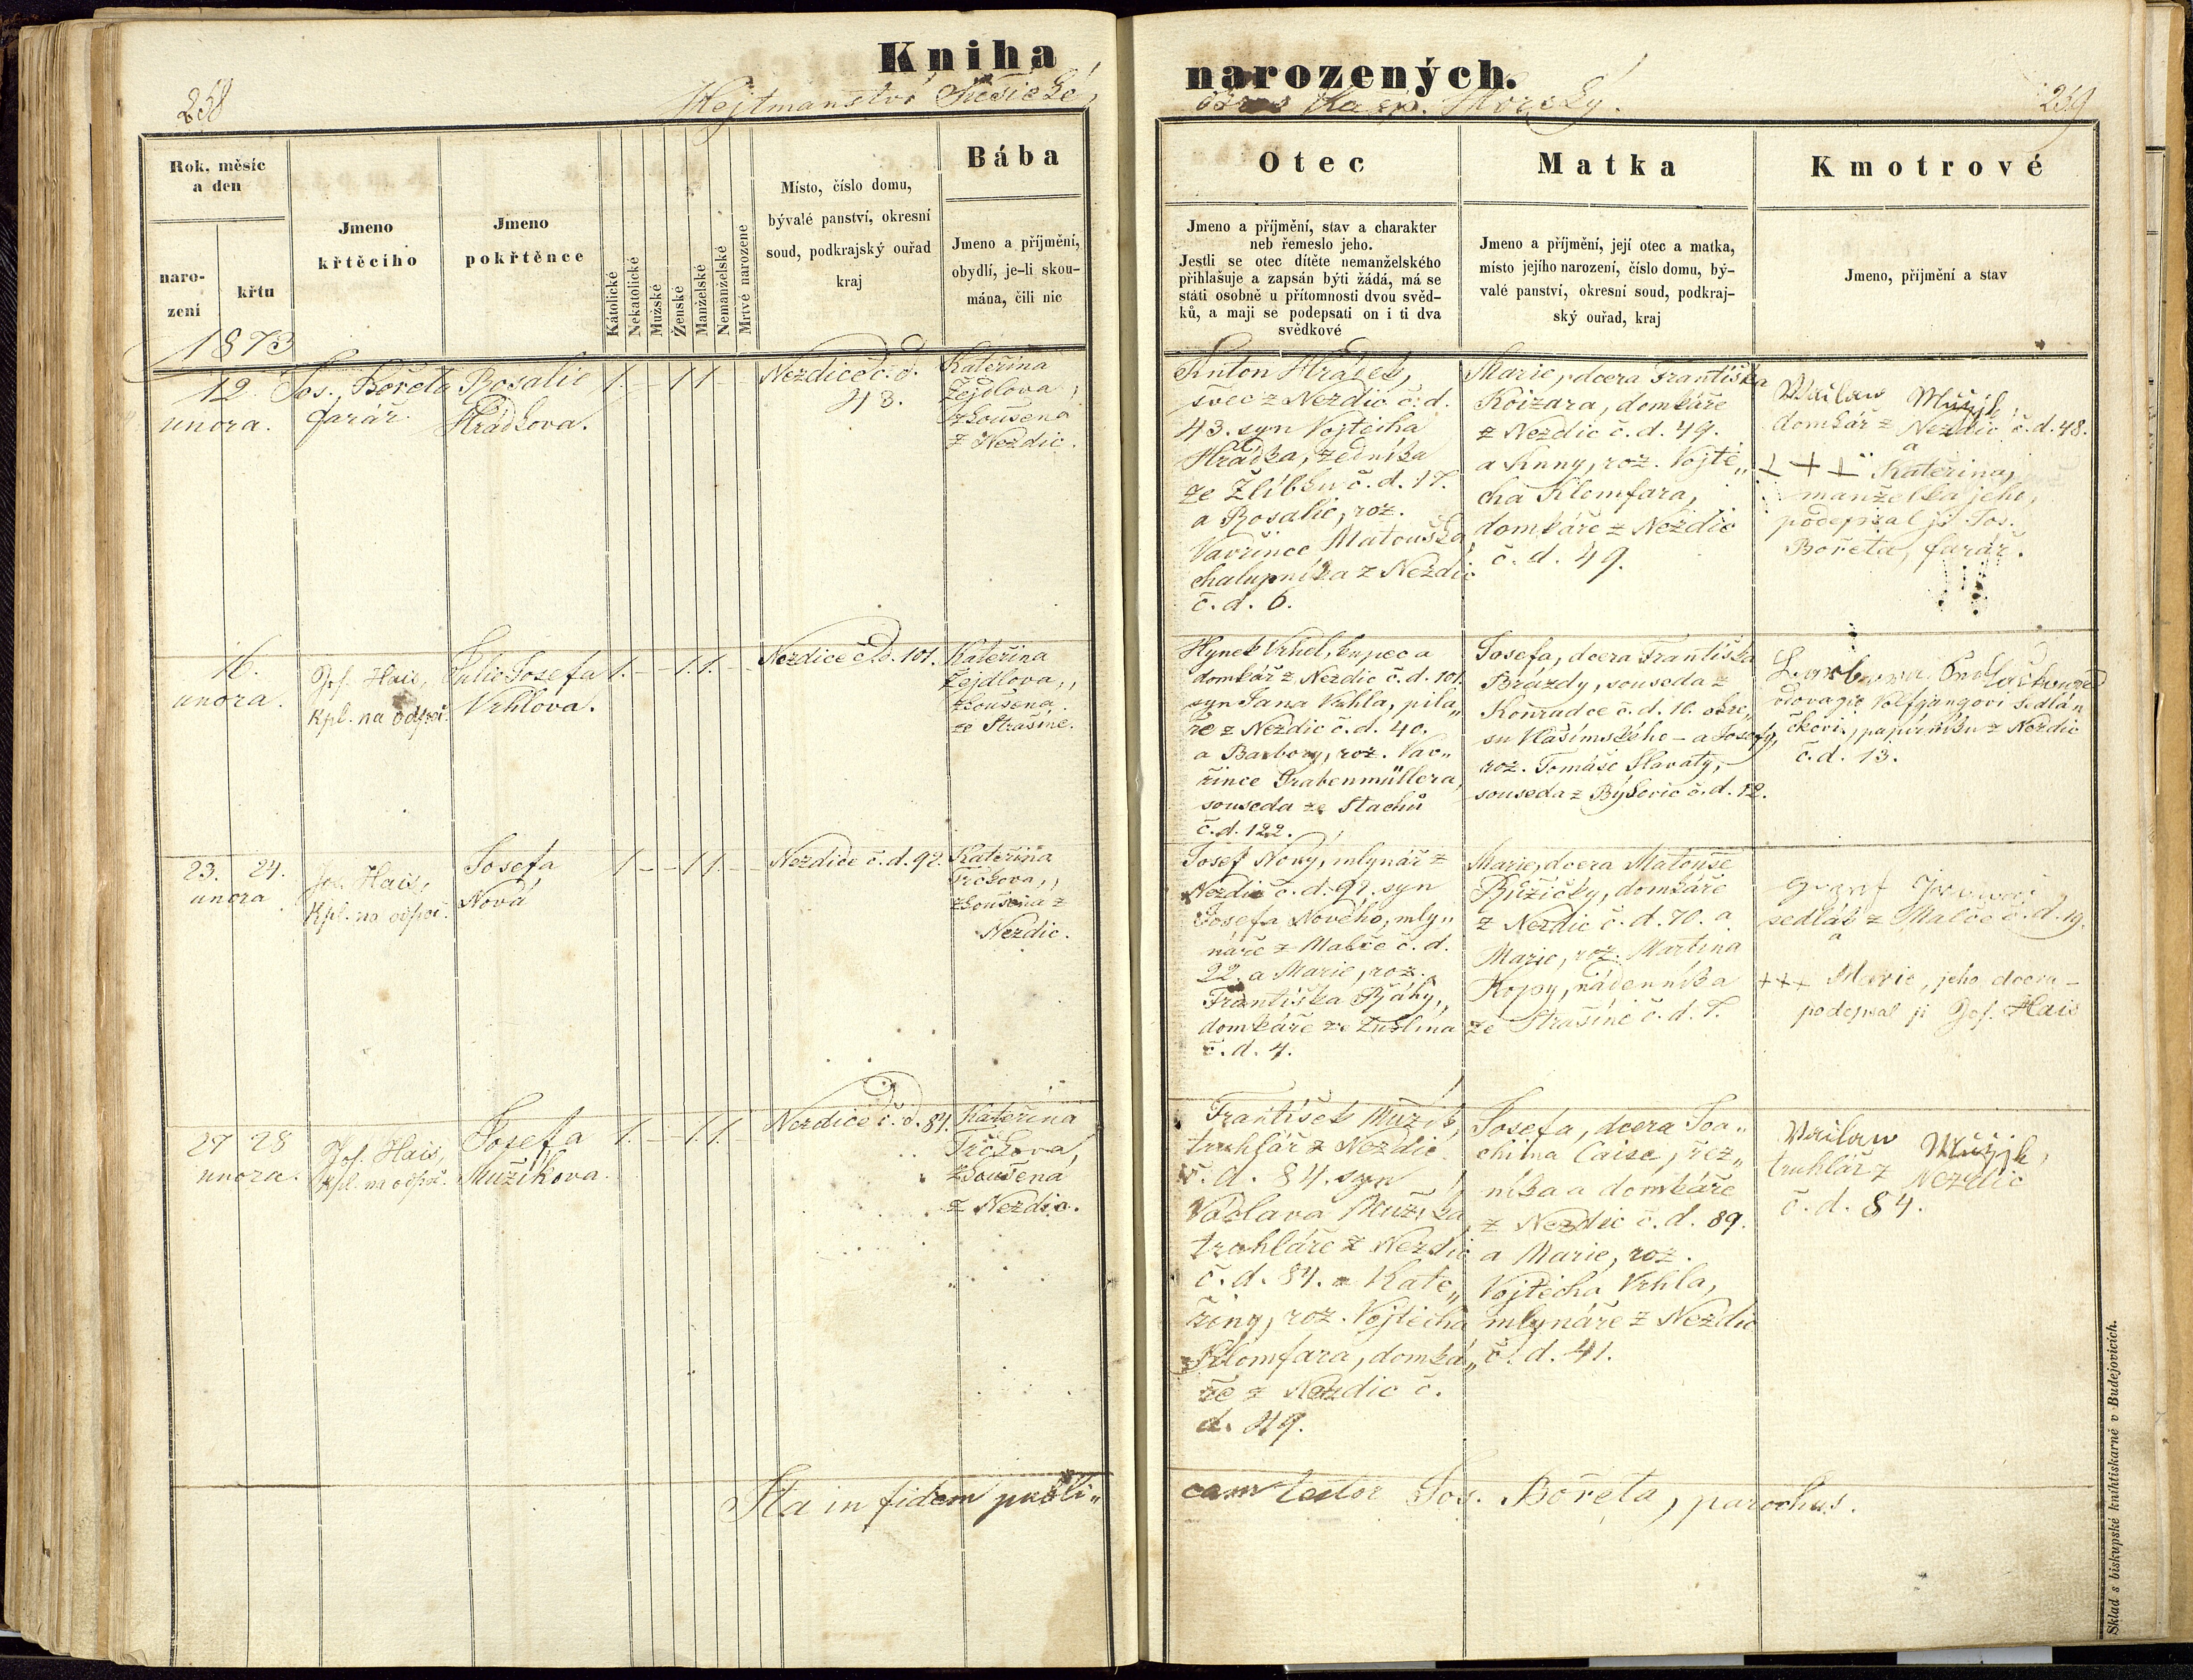 Kniha
narozených.
258
Hejtmanství Sušické,
okres Kašp. Horský.
259
Rok, měsíc
a den
naro-
zení
křtu
Jmeno
křtěcího
Jmeno
pokřtěnce
Katolické
Nekatolické
Mužské
Ženské
Manželské
Nemanželské
Mrtvé narozené
Místo, číslo domu,
bývalé panství, okresní
soud, podkrajský ouřad
kraj
Bába
Jmeno a příjmění,
obydlí, je-li skou-
mána, čili nic
Otec
Jmeno a příjmění, stav a charakter
neb řemeslo jeho.
Jestli se otec dítěte nemanželského
přihlašuje a zapsán býti žádá, má se
státi osobně u přítomnosti dvou svěd-
ků, a mají se podepsati on i ti dva
svědkové
Matka
Jmeno a příjmění, její otec a matka,
místo jejího narození, číslo domu, bý-
valé panství, okresní soud, podkraj-
ský ouřad, kraj
Kmotrové
Jmeno, příjmění a stav
1873
12.
února.
Jos. Bořeta
farář.
Rosalie
Hrádkova.
1. – 1 1 –
Nezdice č. d.
43.
Kateřina
Zejdlova,
zkoušena
z Nezdic.
Anton Hrádek,
švec z Nezdic č. d.
43. syn Vojtěcha
Hrádka, zedníka
ze Žlíbku č. d. 17.
a Rosalie, roz.
Vavřince Matouška
chalupníka z Nezdic
č. d. 6.
Marie, dcera Františka
domkáře
z Nezdic č. d. 49.
a Anny, roz. Vojtě„
cha Klomfara,
domkáře z Nezdic
č. d. 49.
Wacław Mužjk,
domkář z Nezdic č. d. 48.
a
+ + + Kateřina,
manželka jeho,
podepsal ji Jos.
Bořeta, farář.
16.
února.
Jos. Hais,
Kpl. na odpoč.
Julie Josefa
Vrhlova.
1. – 1. 1. –
Nezdice č. d. 101.
Kateřina
Zejdlova,,
zkoušena
ze Strašíně.
Hynek Vrhel, kupec a
domkář z Nezdic č. d. 101.
syn Jana Vrhla, pila„
ře z Nezdic č. d. 40.
a Barbory, roz. Vav„
řince Grabenmüllera,
souseda ze Stachů
č. d. 122.
Josefa, dcera Františka
Brázdy, souseda z
Konradce č. d. 10. okre„
su Vlašimského – a Josefy,
roz. Tomáše Slavaty,
souseda z č. d. 12.
Barbora
Wolfgangovi Sedlá„
čkovi, papírníku z Nezdic
č. d. 13.
23. 24.
února
Jos. Hais,
Kpl. na odpoč.
Josefa
Nová
1. – – 1 1. –
Nezdice č. d. 92.
Kateřina
Trčkova,,
zkoušena z
Nezdic.
Josef Nový, mlynář z
Nezdic č. d. 92. syn
Josefa Nového, mly„
náře z Malče č. d.
22. a Marie, roz.
Františka
domkáře ze Žuslina
č. d. 4.
Marie, dcera Matouše
Růžičky, domkáře
z Nezdic č. d. 70. a
Marie, roz. Martina
Koppy, nádenníka
ze Strašíně č. d. 7.
sedlák z Malče č. d. 19.
a
+++ Marie, jeho dcera –
podepsal ji Jos. Hais
27 28
února.
Jos. Hais,
Kpl. na odpoč.
Josefa
Mužíkova.
1. – 1. 1. –
Nezdice č. d. 84.
Kateřina
Trčkova,
zkoušená
z Nezdic.
František Mužík,
truhlář z Nezdic
č. d. 84. syn
Václava Mužíka,
truhláře z Nezdic
č. d. 84. a Kate„
řiny, roz. Vojtěcha
Klomfara, domká„
ře z Nezdic č.
d. 49.
Josefa, dcera Joa„
chima Caise, řez„
níka a domkáře
z Nezdic č. d. 89.
a Marie, roz.
Vojtěcha Vrhla,
mlynáře z Nezdic
č. d. 41.
Wacław Mužjk,
truhlář z Nezdic
č. d. 84.
Ita in fidem publi„
cam testor Jos. Bořeta, parochus.
Sklad s biskupské knihtiskarně v Budejovicích.